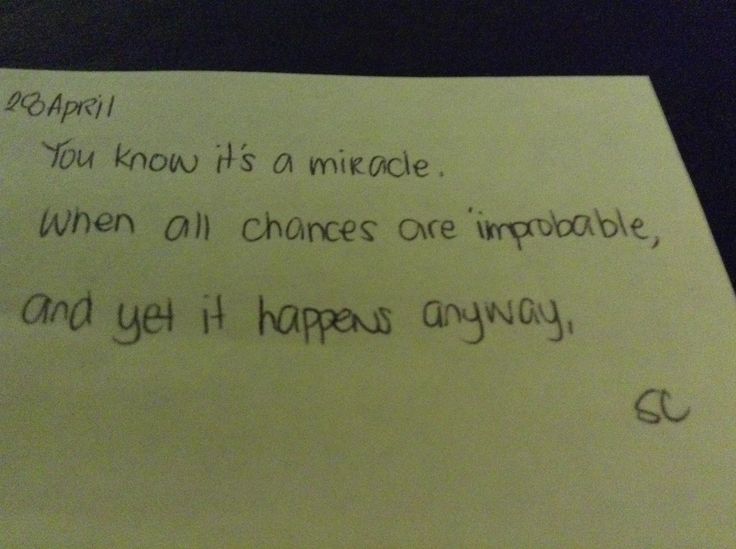 28 April
You know it's a miracle.
When all chances are improbable,
and yet it happens anyway.
SC